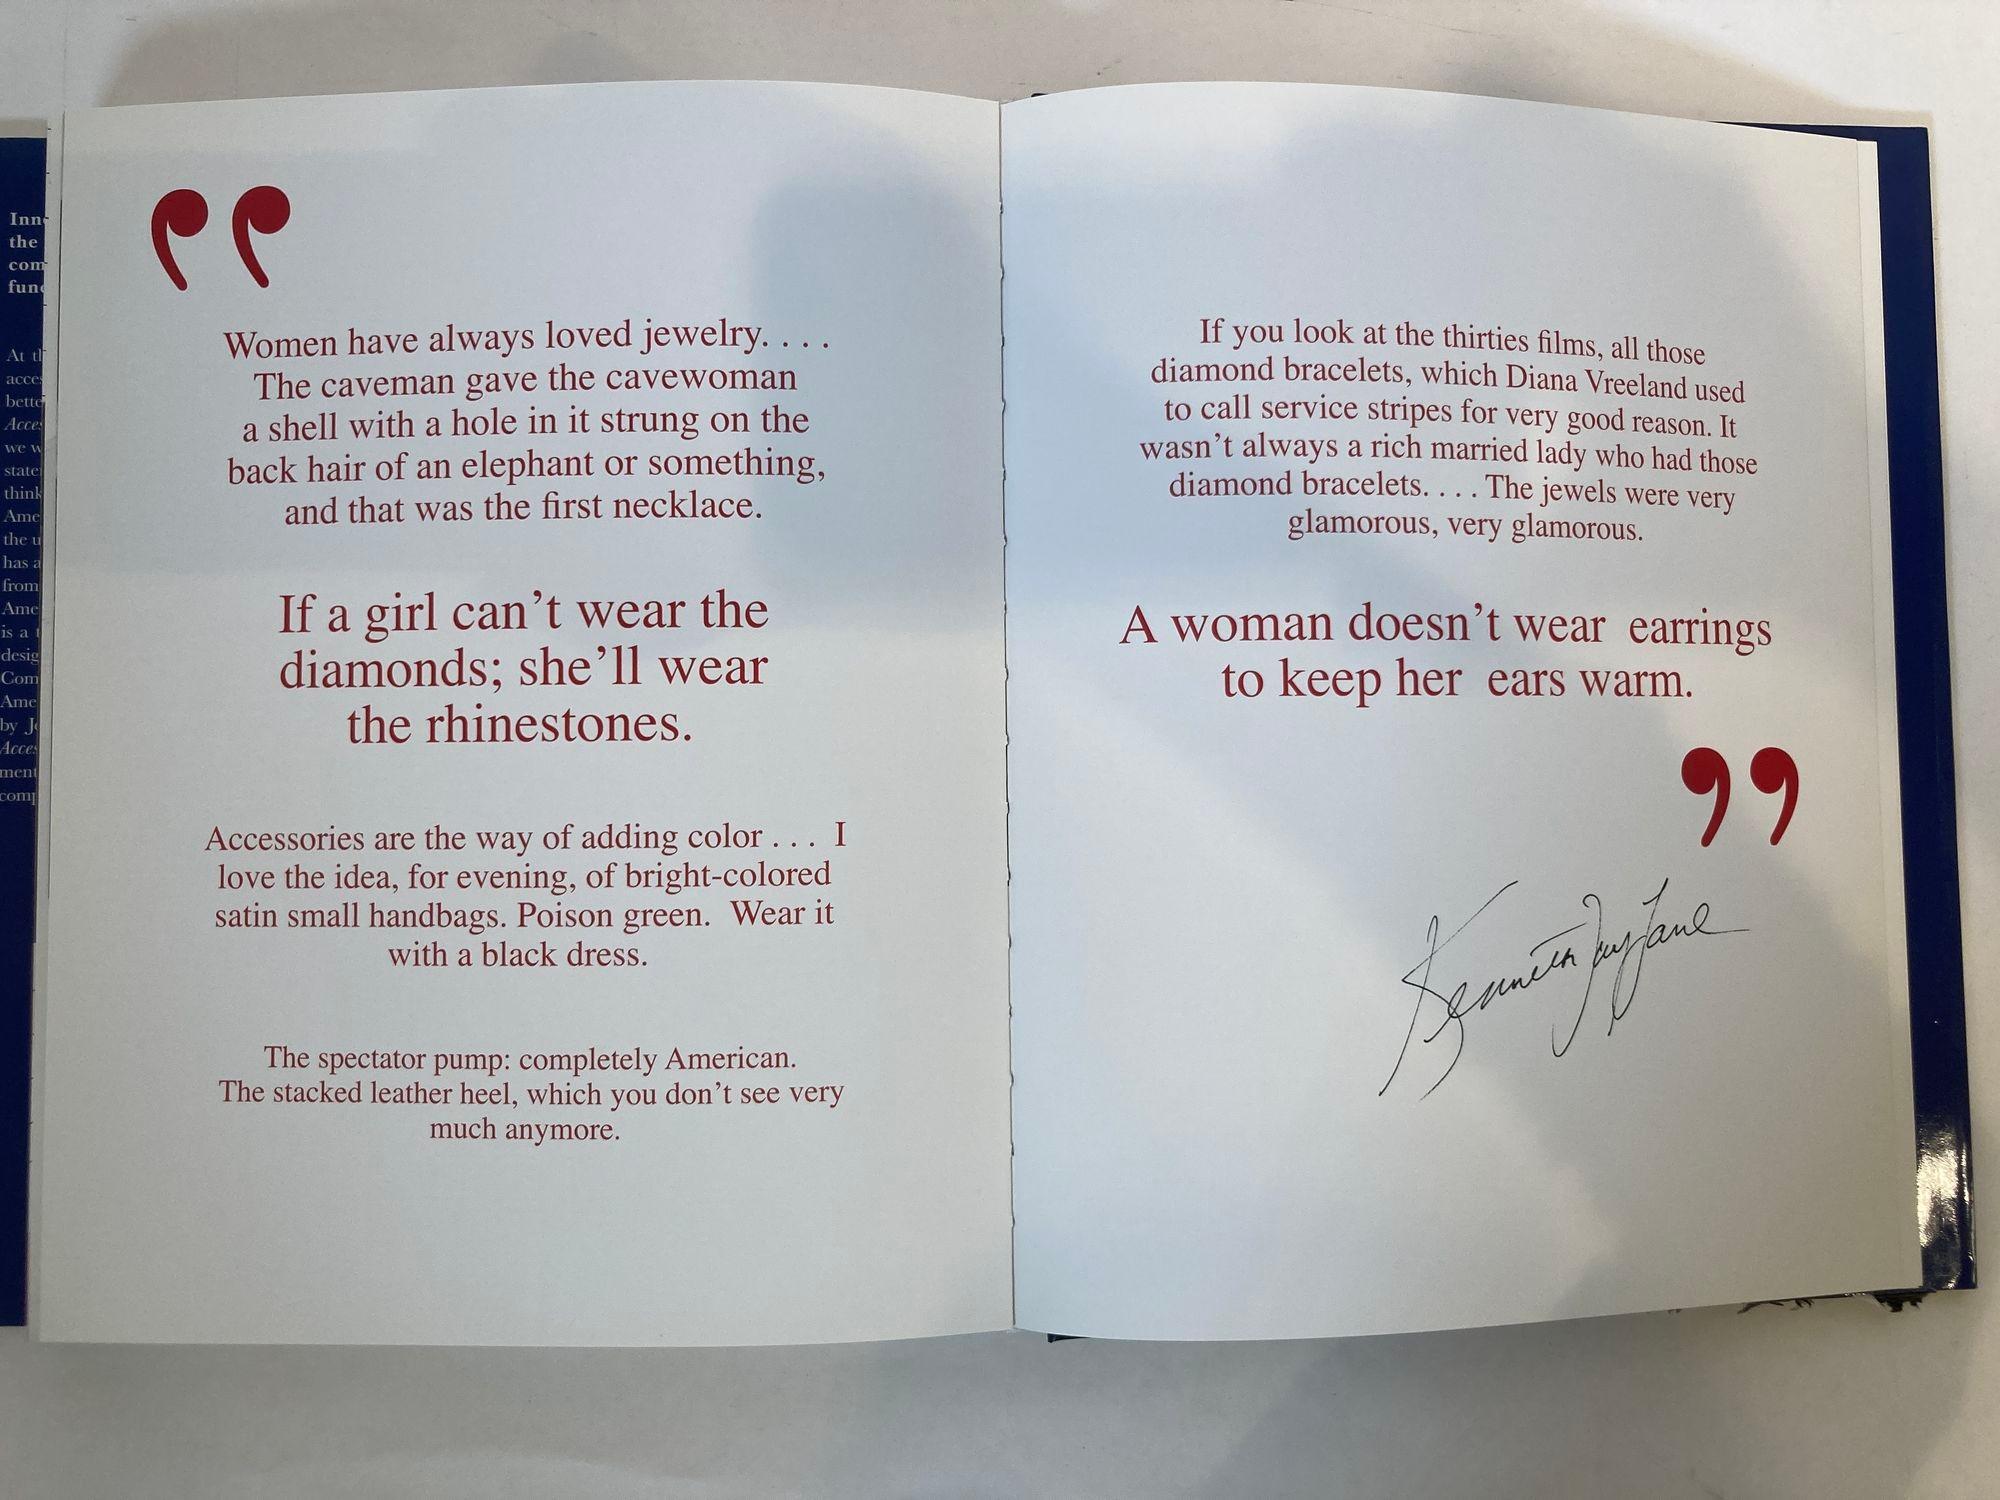 Inn
the
com
func
At th
acces
bette
Acces
we w
state
think
Ame
the u
has a
from
Ame
is a t
desig
Com
Ame
by Jo
Acces
ment
comp
Women have always loved jewelry. . . .
The caveman gave the cavewoman
a shell with a hole in it strung on the
back hair of an elephant or something,
and that was the first necklace.
If a girl can’t wear the
diamonds; she’ll wear
the rhinestones.
Accessories are the way of adding color . . . I
love the idea, for evening, of bright-colored
satin small handbags. Poison green. Wear it
with a black dress.
The spectator pump: completely American.
The stacked leather heel, which you don’t see very
much anymore.
If you look at the thirties films, all those
diamond bracelets, which Diana Vreeland used
to call service stripes for very good reason. It
wasn’t always a rich married lady who had those
diamond bracelets. . . . The jewels were very
glamorous, very glamorous.
A woman doesn’t wear earrings
to keep her ears warm.
”
Kenneth Jay Lane